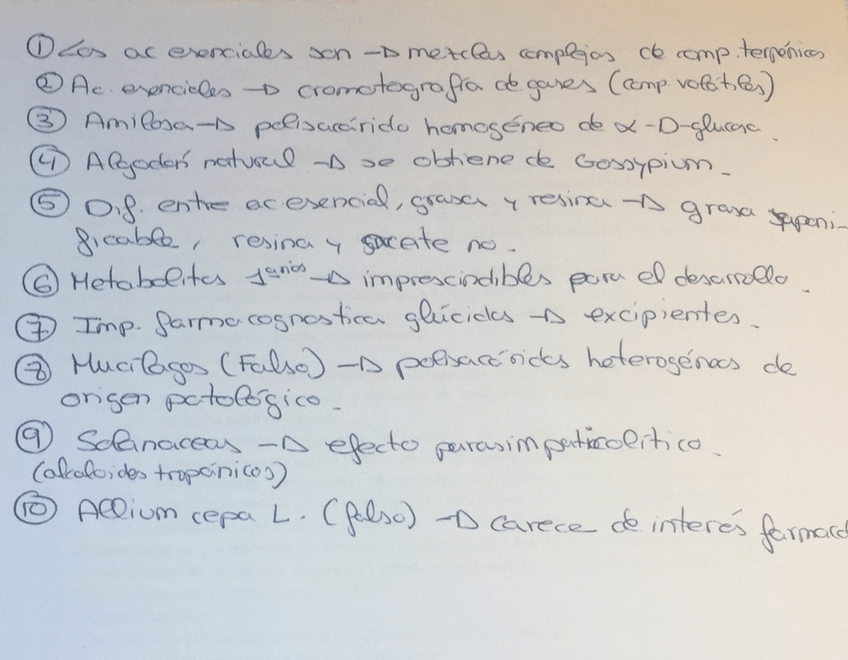 ① Los ac esenciales son → mezclas complejas de comp. terpénicos
② Ac. esenciales → cromatografía de gases (comp. volátiles)
③ Amilosa → polisacárido homogéneo de α-D-glucosa.
④ Algodón natural → se obtiene de Gossypium.
⑤ Dif. entre ac esencial, grasa y resina → grasa saponi-
ficable, resina y aceite no.
⑥ Metabolitos 1arios → imprescindibles para el desarrollo.
⑦ Imp. farmacognostica glúcidos → excipientes.
⑧ Mucílagos (Falso) → polisacáridos heterogéneos de
origen patológico.
⑨ Solanaceas → efecto parasimpaticolítico.
(alcaloides tropánicos)
⑩ Allium cepa L. (falso) → carece de interés farmaco